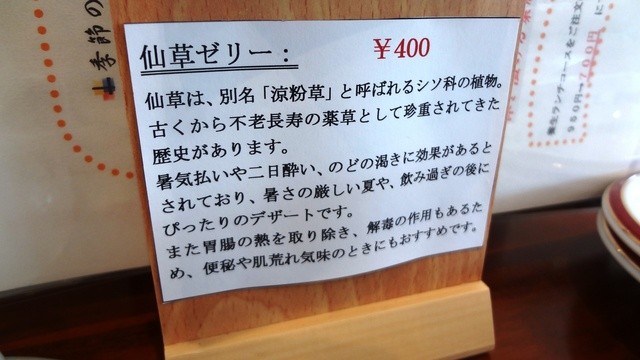 仙草ゼリー： ￥400
仙草は、別名「涼粉草」と呼ばれるシソ科の植物。
古くから不老長寿の薬草として珍重されてきた
歴史があります。
暑気払いや二日酔い、のどの渇きに効果があると
されており、暑さの厳しい夏や、飲み過ぎの後に
ぴったりのデザートです。
また胃腸の熱を取り除き、解毒の作用もあるた
め、便秘や肌荒れ気味のときにもおすすめです。
季節の
養生ランチ・コースをご注文
700円